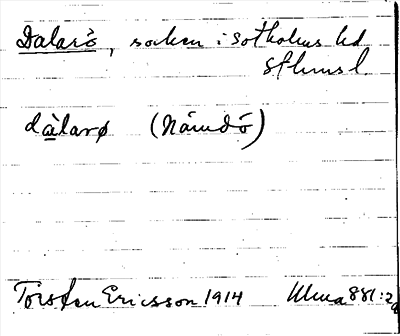 Dalarö, socken i Sotholms hd
Sthms l.
dàlarø (Nämdö)
Torsten Ericsson 1914 Ulma 881:2